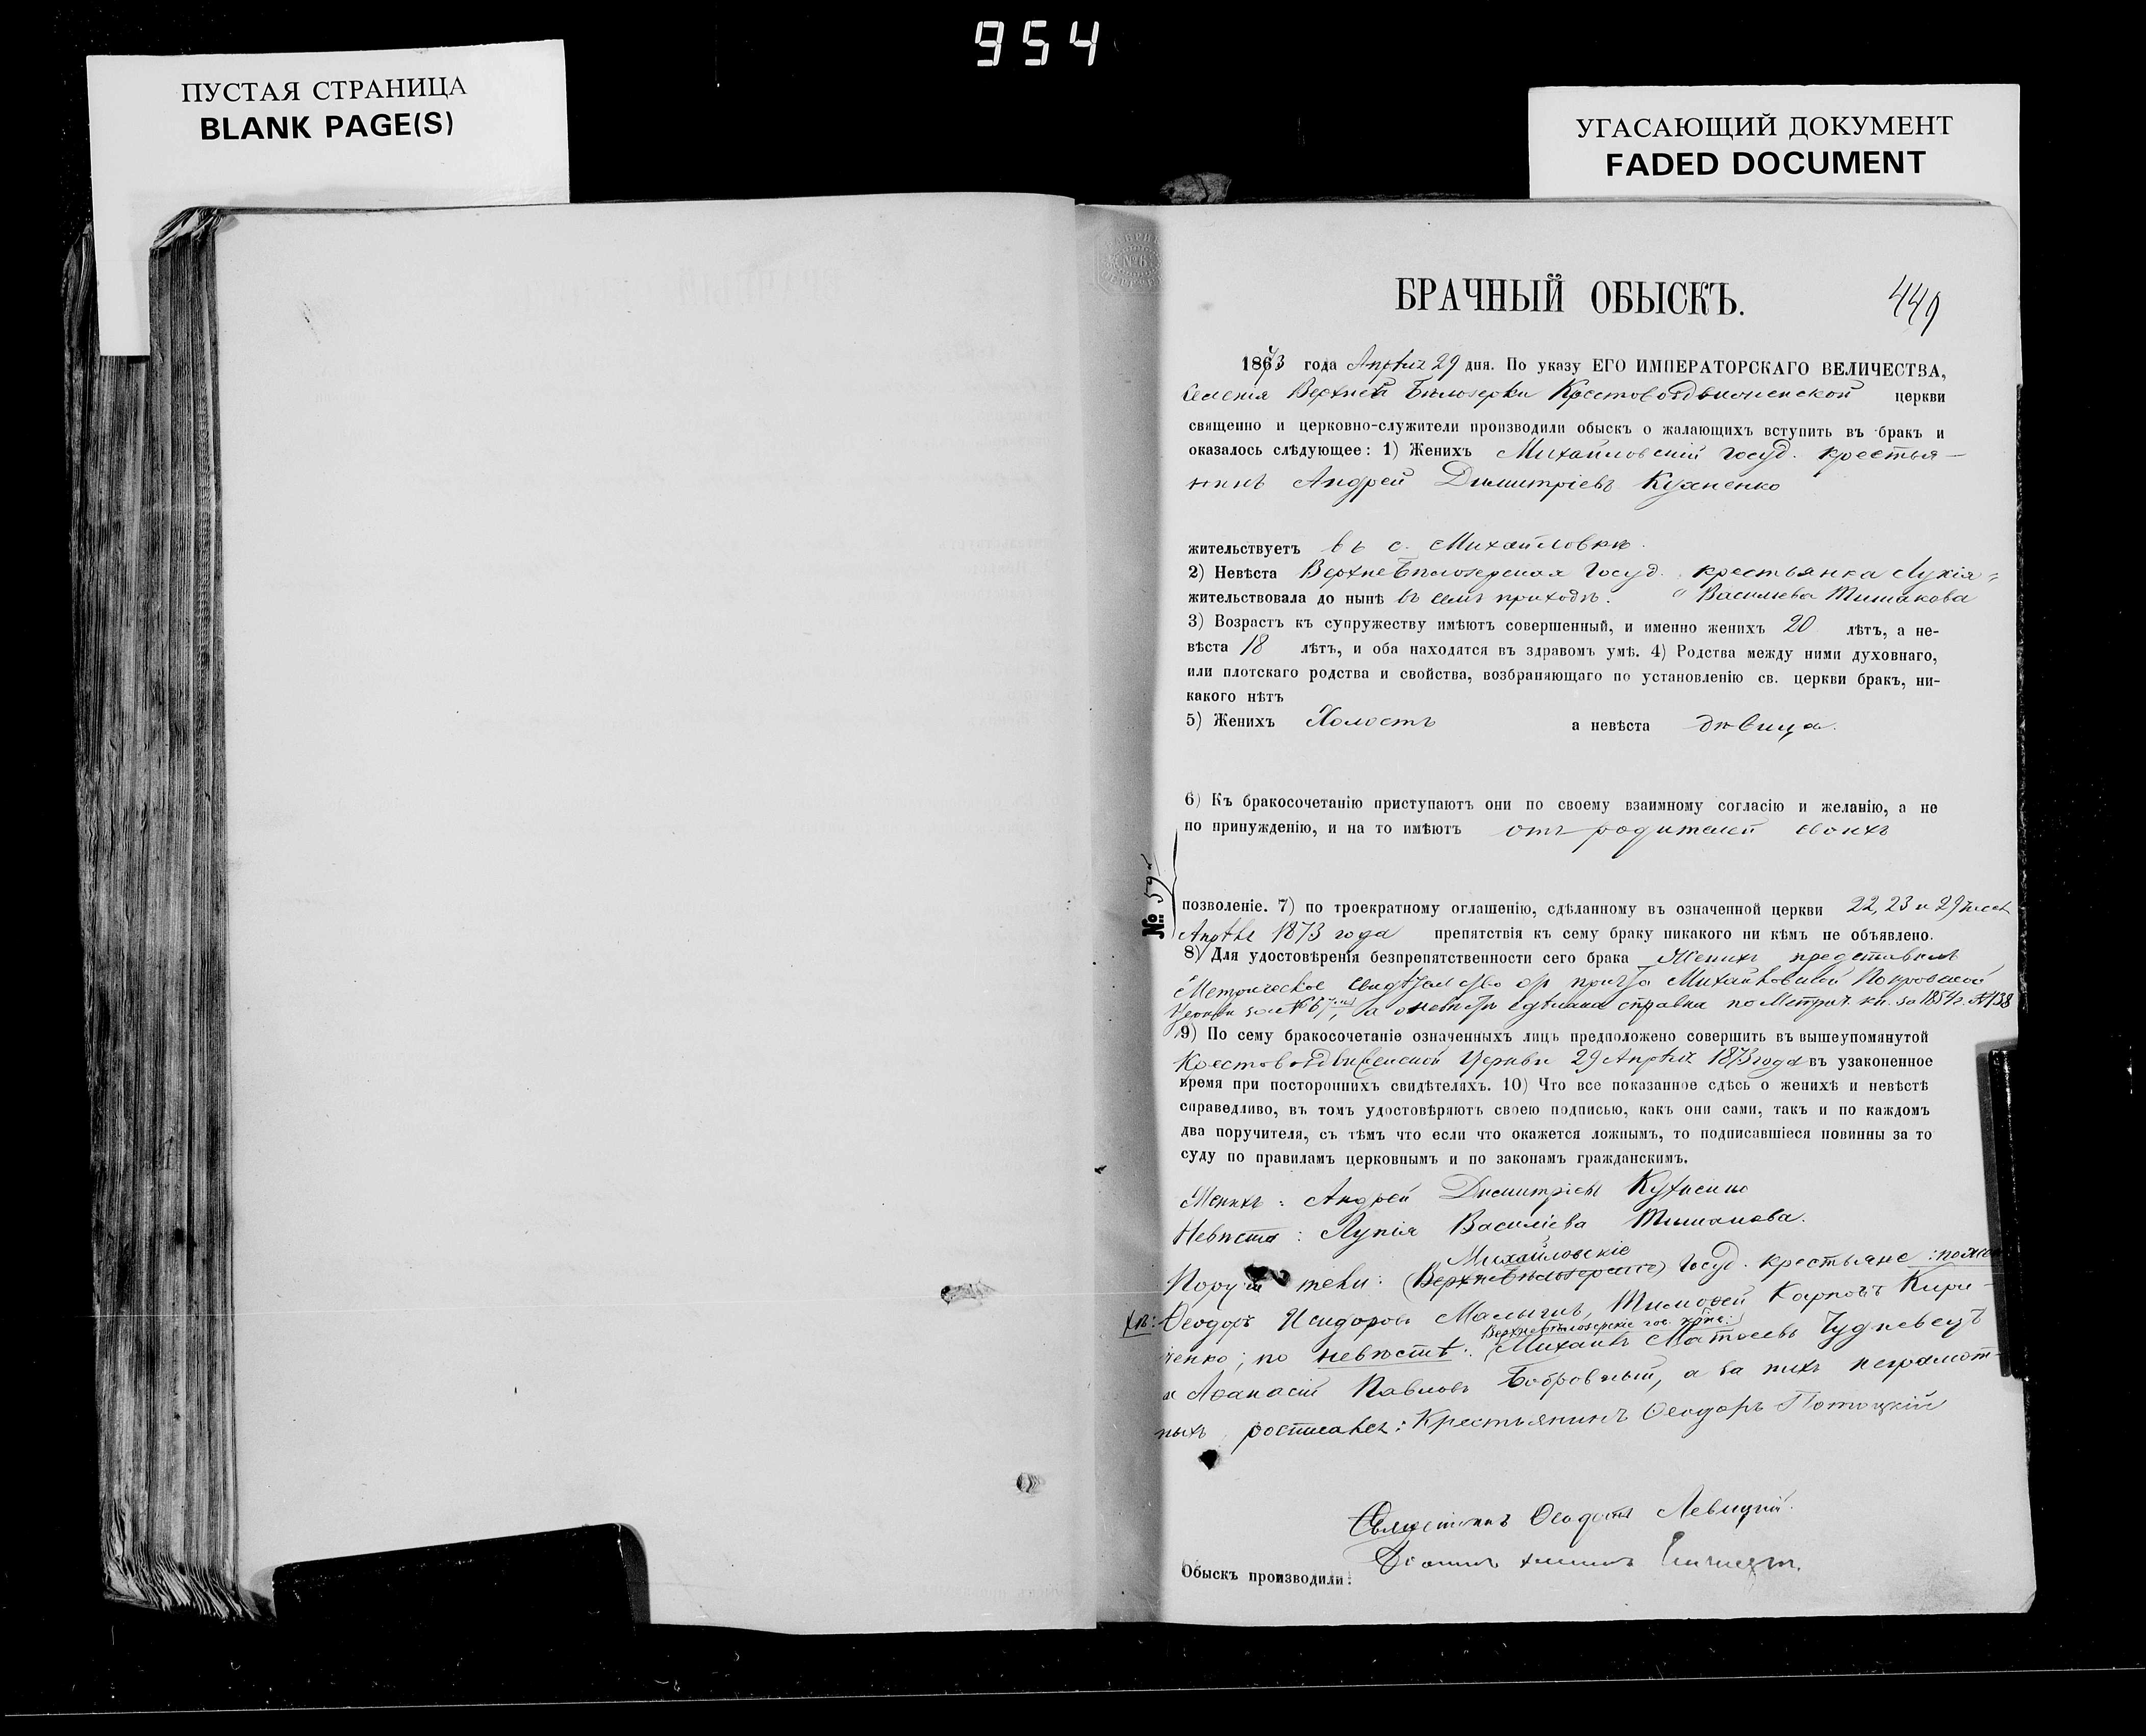 954
ПУСТАЯ СТРАНИЦА
BLANK PAGE(S)
УГАСАЮЩИЙ ДОКУМЕНТ
FADED DOCUMENT
БРАЧНЫЙ ОБЫСКЪ.
449
1873 года Апрѣля 29 дня. По указу ЕГО ИМПЕРАТОРСКАГО ВЕЛИЧЕСТВА,
Селенія Верхней Бѣлозерки Крестовоздвиженской церкви
священно и церковно-служители производили обыскъ о жалающихъ вступить въ бракъ и
оказалось слѣдующее: 1) Женихъ Михайловскій госуд. крестья-
нинъ Андрей Димитріевъ Кухненко
жительствуетъ въ с. Михайловкѣ.
2) Невѣста Верхнебѣлозерская Госуд. крестьянка Лукія
жительствовала до нынѣ въ семъ приходѣ. Васильева Тишакова
3) Возрастъ къ супружеству имѣютъ совершенный, и именно женихъ 20 лѣтъ, а не-
вѣста 18 лѣтъ, и оба находятся въ здравомъ умѣ. 4) Родства между ними духовнаго,
или плотскаго родства и свойства, возбраняющаго по установленію св. церкви бракъ, ни-
какого нѣтъ
5) Женихъ Холостъ а невѣста дѣвица.
6) Къ бракосочетанію приступаютъ они по своему взаимному согласію и желанію, а не
по принужденію, и на то имѣютъ отъ родителей своихъ
№: 59
позволеніе. 7) по троекратному оглашенію, сдѣланному въ означенной церкви 22, 23 и 29 чиселъ
Апрѣля 1873 года препятствія къ сему браку никакого ни кѣмъ не объявлено.
8) Для удостовѣренія безпрепятственности сего брака Женихъ представилъ
Метрическое свидѣтельство отъ причта Михайловской Покровской
Церкви за № 67, а о невѣстѣ сдѣлана справка по Метрич. кн. за 1854 г. № 138
9) По сему бракосочетаніе означенныхъ лицъ предположено совершить въ вышеупомянутой
Крестовоздвиженской Церкви 29 Апрѣля 1873 года въ узаконенное
время при постороннихъ свидѣтеляхъ. 10) Что все показанное сдѣсь о женихѣ и невѣстѣ
справедливо, въ томъ удостовѣряютъ своею подписью, какъ они сами, такъ и по каждомъ
два поручителя, съ тѣмъ что если что окажется ложнымъ, то подписавшіеся повинны за то
суду по правиламъ церковнымъ и по законамъ гражданскимъ.
Женихъ: Андрей Димитріевъ Кухненко
Невѣста: Лукія Василіева Тишакова.
Михайловскіе
Поручители: (Верхнебѣлозерскіе) Госуд. крестьяне: по жени
хѣ: Ѳеодоръ Исидоровъ Малыгинъ, Тимоѳей Карповъ Кири-
Верхнебѣлозерскіе гос. крес.
ченко; по невѣстѣ: Михаилъ Матѳеевъ Чудновецъ
и Аѳанасій Павловъ Бобровный, а за нихъ неграмот-
ныхъ росписался: Крестьянинъ Ѳеодоръ Потоцкій
Священникъ Ѳеодотъ Левицкій.
Обыскъ производили: